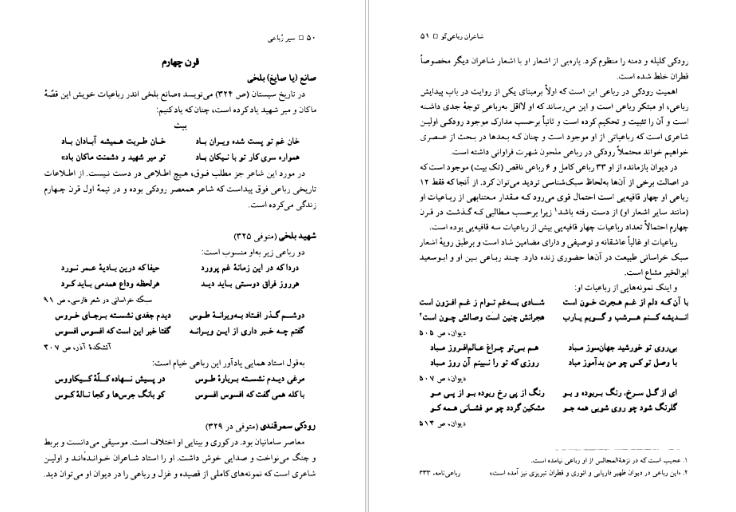 ۵۰ □ سیر رُباعی
قرن چهارم
صانع (یا صایغ) بلخی
در تاریخ سیستان (ص ۳۲۴) می‌نویسد «صانع بلخی اندر رباعیات خویش این قصّهٔ
ماکان و میر شهید یاد کرده است، چنان که یاد کنیم:
بیت
خان غم تو پست شده ویران باد خان طربت همیشه آبادان باد
همواره سری کار تو با نیکان باد تو میر شهید و دشمنت ماکان باد»
در مورد این شاعر جز مطلب فوق، هیچ اطلاعی در دست نیست. از اطلاعات
تاریخی رباعی فوق پیداست که شاعر همعصر رودکی بوده و در نیمهٔ اول قرن چهارم
زندگی می‌کرده است.
شهید بلخی (متوفی ۳۲۵)
دو رباعی زیر به‌او منسوب است:
دردا که در این زمانهٔ غم پرورد حیفا که درین بادیهٔ عمر نورد
هر روز فراق دوستی باید دید هر لحظه وداع همدمی باید کرد
سبک خراسانی در شعر فارسی، ص ۹۱
دوشم گذر افتاد به‌ویرانهٔ طوس دیدم جغدی نشسته بر‌جای خروس
گفتم چه خبر داری از این ویرانه گفتا خبر این است که افسوس افسوس
آتشکدهٔ آذر، ص ۲۰۷
به‌قول استاد همایی یادآور این رباعی خیام است:
مرغی دیدم نشسته بر بارهٔ طوس در پیش نهاده کلّهٔ کیکاووس
با کله همی گفت که افسوس افسوس کو بانگ جرس‌ها و کجا نالهٔ کوس
رودکی سمرقندی (متوفی در ۳۲۹)
معاصر سامانیان بود. در کوری و بینایی او اختلاف است. موسیقی می‌دانست و بربط
و چنگ می‌نواخت و صدایی خوش داشت. او را استاد شاعران خوانده‌اند و اولین
شاعری است که نمونه‌های کاملی از قصیده و غزل و رباعی را در دیوان او می‌توان دید.
شاعران رباعی‌گو □ ۵۱
رودکی کلیله و دمنه را منظوم کرد. پاره‌یی از اشعار او با اشعار شاعران دیگر مخصوصاً
قطران خلط شده است.
اهمیت رودکی در رباعی این است که اولاً بر‌مبنای یکی از روایت در باب پیدایش
رباعی، او مبتکر رباعی است و این می‌رساند که او لااقل به‌رباعی توجهٔ جدی داشته
است و آن را تثبیت و تحکیم کرده است و ثانیاً برحسب مدارک موجود رودکی اولین
شاعری است که رباعیاتی از او موجود است و چنان که بعدها در بحث از عصری
خواهیم خواند محتملاً رودکی در رباعی ملحون شهرت فراوانی داشته است.
در دیوان بازمانده از او ۳۳ رباعی کامل و ۶ رباعی ناقص (تک بیت) موجود است که
در اصالت برخی از آن‌ها به‌لحاظ سبک‌شناسی تردید می‌توان کرد. از آنجا که فقط ۱۲
رباعی او چهار قافیه‌یی است احتمال قوی می‌رود که مقدار معتنابهی از رباعیات او
(مانند سایر اشعار او) از دست رفته باشد۱ زیرا برحسب مطالبی که گذشت در قرن
چهارم احتمالاً تعداد رباعیات چهار قافیه‌یی بیش از رباعیات سه قافیه‌یی بوده است.
رباعیات او غالباً عاشقانه و توصیفی و دارای مضامین شاد است و بر‌طبق رویهٔ اشعار
سبک خراسانی طبیعت در آن‌ها حضوری زنده دارد. چند رباعی بین او و ابوسعید
ابوالخیر مشاع است.
و اینک نمونه‌هایی از رباعیات او:
با آن که دلم از غم هجرت خون است شادی به‌غم توام ز غم افزون است
اندیشه کنم هر شب و گویم یارب هجرانش چنین است وصالش چون است۲
دیوان، ص ۵۰۵
بی‌روی تو خورشید جهان‌سوز مباد هم بی‌تو چراغ عالم‌افروز مباد
با وصل تو کس چو من بدآموز مباد روزی که تو را نبینم آن روز مباد
دیوان، ص ۵۰۷
ای از گل سرخ، رنگ بربوده و بو رنگ از پی رخ ربوده بو از پی مو
گلرنگ شود چو روی شویی همه جو مشکین گردد چو مو فشانی همه کو
دیوان، ص ۵۱۴
۱. عجیب است که در نزهةالمجالس از او رباعی نیامده است.
۲. «این رباعی در دیوان ظهیر فاریابی و انوری و قطران تبریزی نیز آمده است» رباعی‌نامه، ۳۳۳